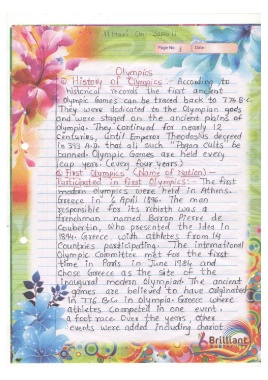 Page No.
Date
Olympics
History of Olympics :- According to
historical records the first ancient
Olympic Games can be traced back to 776 B.C.
They were dedicated to the Olympian gods
and were staged on the ancient plains of
olympia. They Continued for nearly 12
Centuries, until Emperor Theodosius decreed
in 393 A.D. that all such "Pagan Cults" be
banned. Olympic Games are held every
leap year. (every four years)
First Olympics (Name of Nation) -
Participated in first Olympics:- The first
modern Olympics were held in Athens.
Greece in 6 April 1896. The man
responsible for its rebirth was a
frenchman named Barron Pierre de
Coubertin, Who presented the idea in
1894. Greece with athletes from 14
Countries participating. The international
Olympic Committee met for the first
time in Paris in June 1984 and
chose Greece as the site of the
inaugural modern Olympiad. The ancient
games are believed to have originated
in 776 B.C in Olympia. Greece where
athletes Competed in one event,
a foot race. Over the years other
events were added including chariot
Brilliant